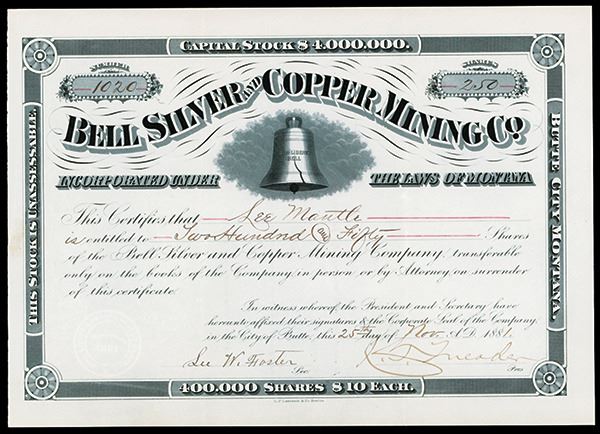 CAPITAL STOCK $4,000,000.
NUMBER
1020
SHARES
250
BELL SILVER AND COPPER MINING CO.
LIBERTY
BELL
INCORPORATED UNDER THE LAWS OF MONTANA
THIS STOCK IS UNASSESSABLE.
BUTTE CITY MONTANA.
This Certifies that Lee Mantle
is entitled to Two Hundred and Fifty Shares
of the Bell Silver and Copper Mining Company, transferable
only on the books of the Company in person or by Attorney on surrender
of this certificate.
In witness whereof, the President and Secretary have
hereunto affixed their signatures & the Corporate Seal of the Company,
in the City of Butte, this 25th day of Nov. A.D. 1881.
Lee W. Foster
Sec.
Pres
400,000 SHARES $10 EACH.